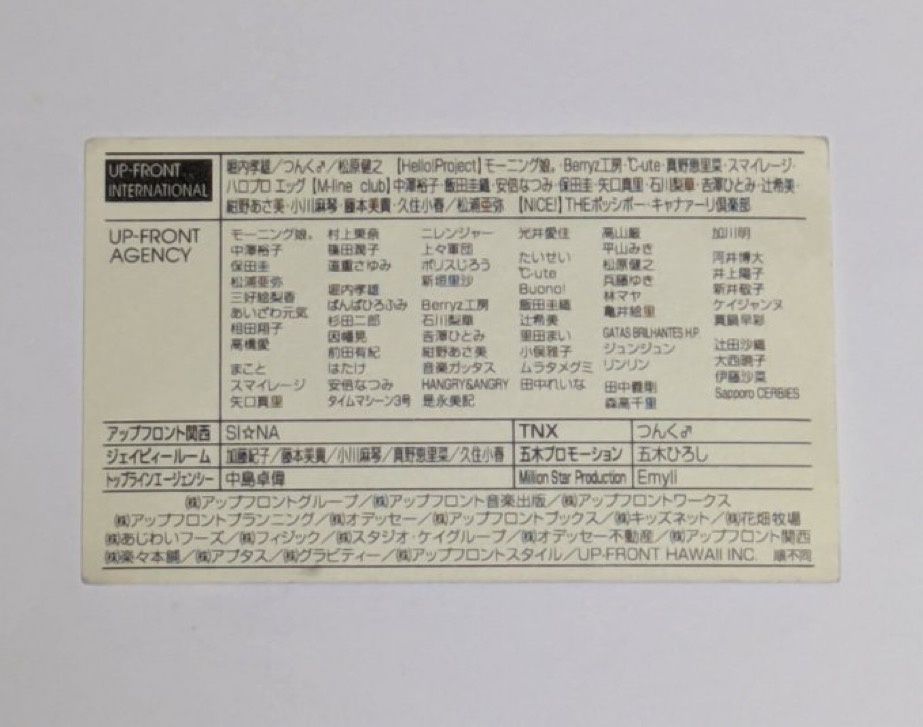 UP-FRONT
INTERNATIONAL
堀内孝雄／つんく♂／松原健之 【Hello!Project】モーニング娘。・Berryz工房・℃-ute・真野恵里菜・スマイレージ・
ハロプロ エッグ【M-line club】中澤裕子・飯田圭織・安倍なつみ・保田圭・矢口真里・石川梨華・吉澤ひとみ・辻希美・
紺野あさ美・小川麻琴・藤本美貴・久住小春／松浦亜弥 【NICE!】THEポッシボー・キャナァーリ倶楽部
UP-FRONT
AGENCY
モーニング娘。
中澤裕子
保田圭
松浦亜弥
三好絵梨香
あいざわ元気
相田翔子
高橋愛
まこと
スマイレージ
矢口真里
村上東奈
篠田潤子
道重さゆみ
堀内孝雄
ばんばひろふみ
杉田二郎
因幡晃
前田有紀
はたけ
安倍なつみ
タイムマシーン3号
ニレンジャー
上々軍団
ポリスじろう
新垣里沙
Berryz工房
石川梨華
吉澤ひとみ
紺野あさ美
音楽ガッタス
HANGRY&ANGRY
是永美記
光井愛佳
たいせい
℃-ute
Buono!
飯田圭織
辻希美
里田まい
小俣雅子
ムラタメグミ
田中れいな
高山厳
平山みき
松原健之
兵藤ゆき
林マヤ
亀井絵里
GATAS BRILHANTES H.P.
ジュンジュン
リンリン
田中義剛
森高千里
加川明
河井博大
井上陽子
新井敬子
ケイジャンヌ
真鍋早彩
辻田沙織
大西暁子
伊藤沙菜
Sapporo CERBIES
アップフロント関西 SI☆NA TNX つんく♂
ジェイピィールーム 加藤紀子／藤本美貴／小川麻琴／真野恵里菜／久住小春 五木プロモーション 五木ひろし
トップラインエージェンシー 中島卓偉 Million Star Production Emyli
㈱アップフロントグループ／㈱アップフロント音楽出版／㈱アップフロントワークス
㈱アップフロントプランニング／㈱オデッセー／㈱アップフロントブックス／㈱キッズネット／㈱花畑牧場
㈱あじわいフーズ／㈱フィジック／㈱スタジオ・ケイグループ／㈱オデッセー不動産／㈱アップフロント関西
㈱楽々本舗／㈱アプタス／㈱グラビティー／㈱アップフロントスタイル／UP-FRONT HAWAII INC. 順不同